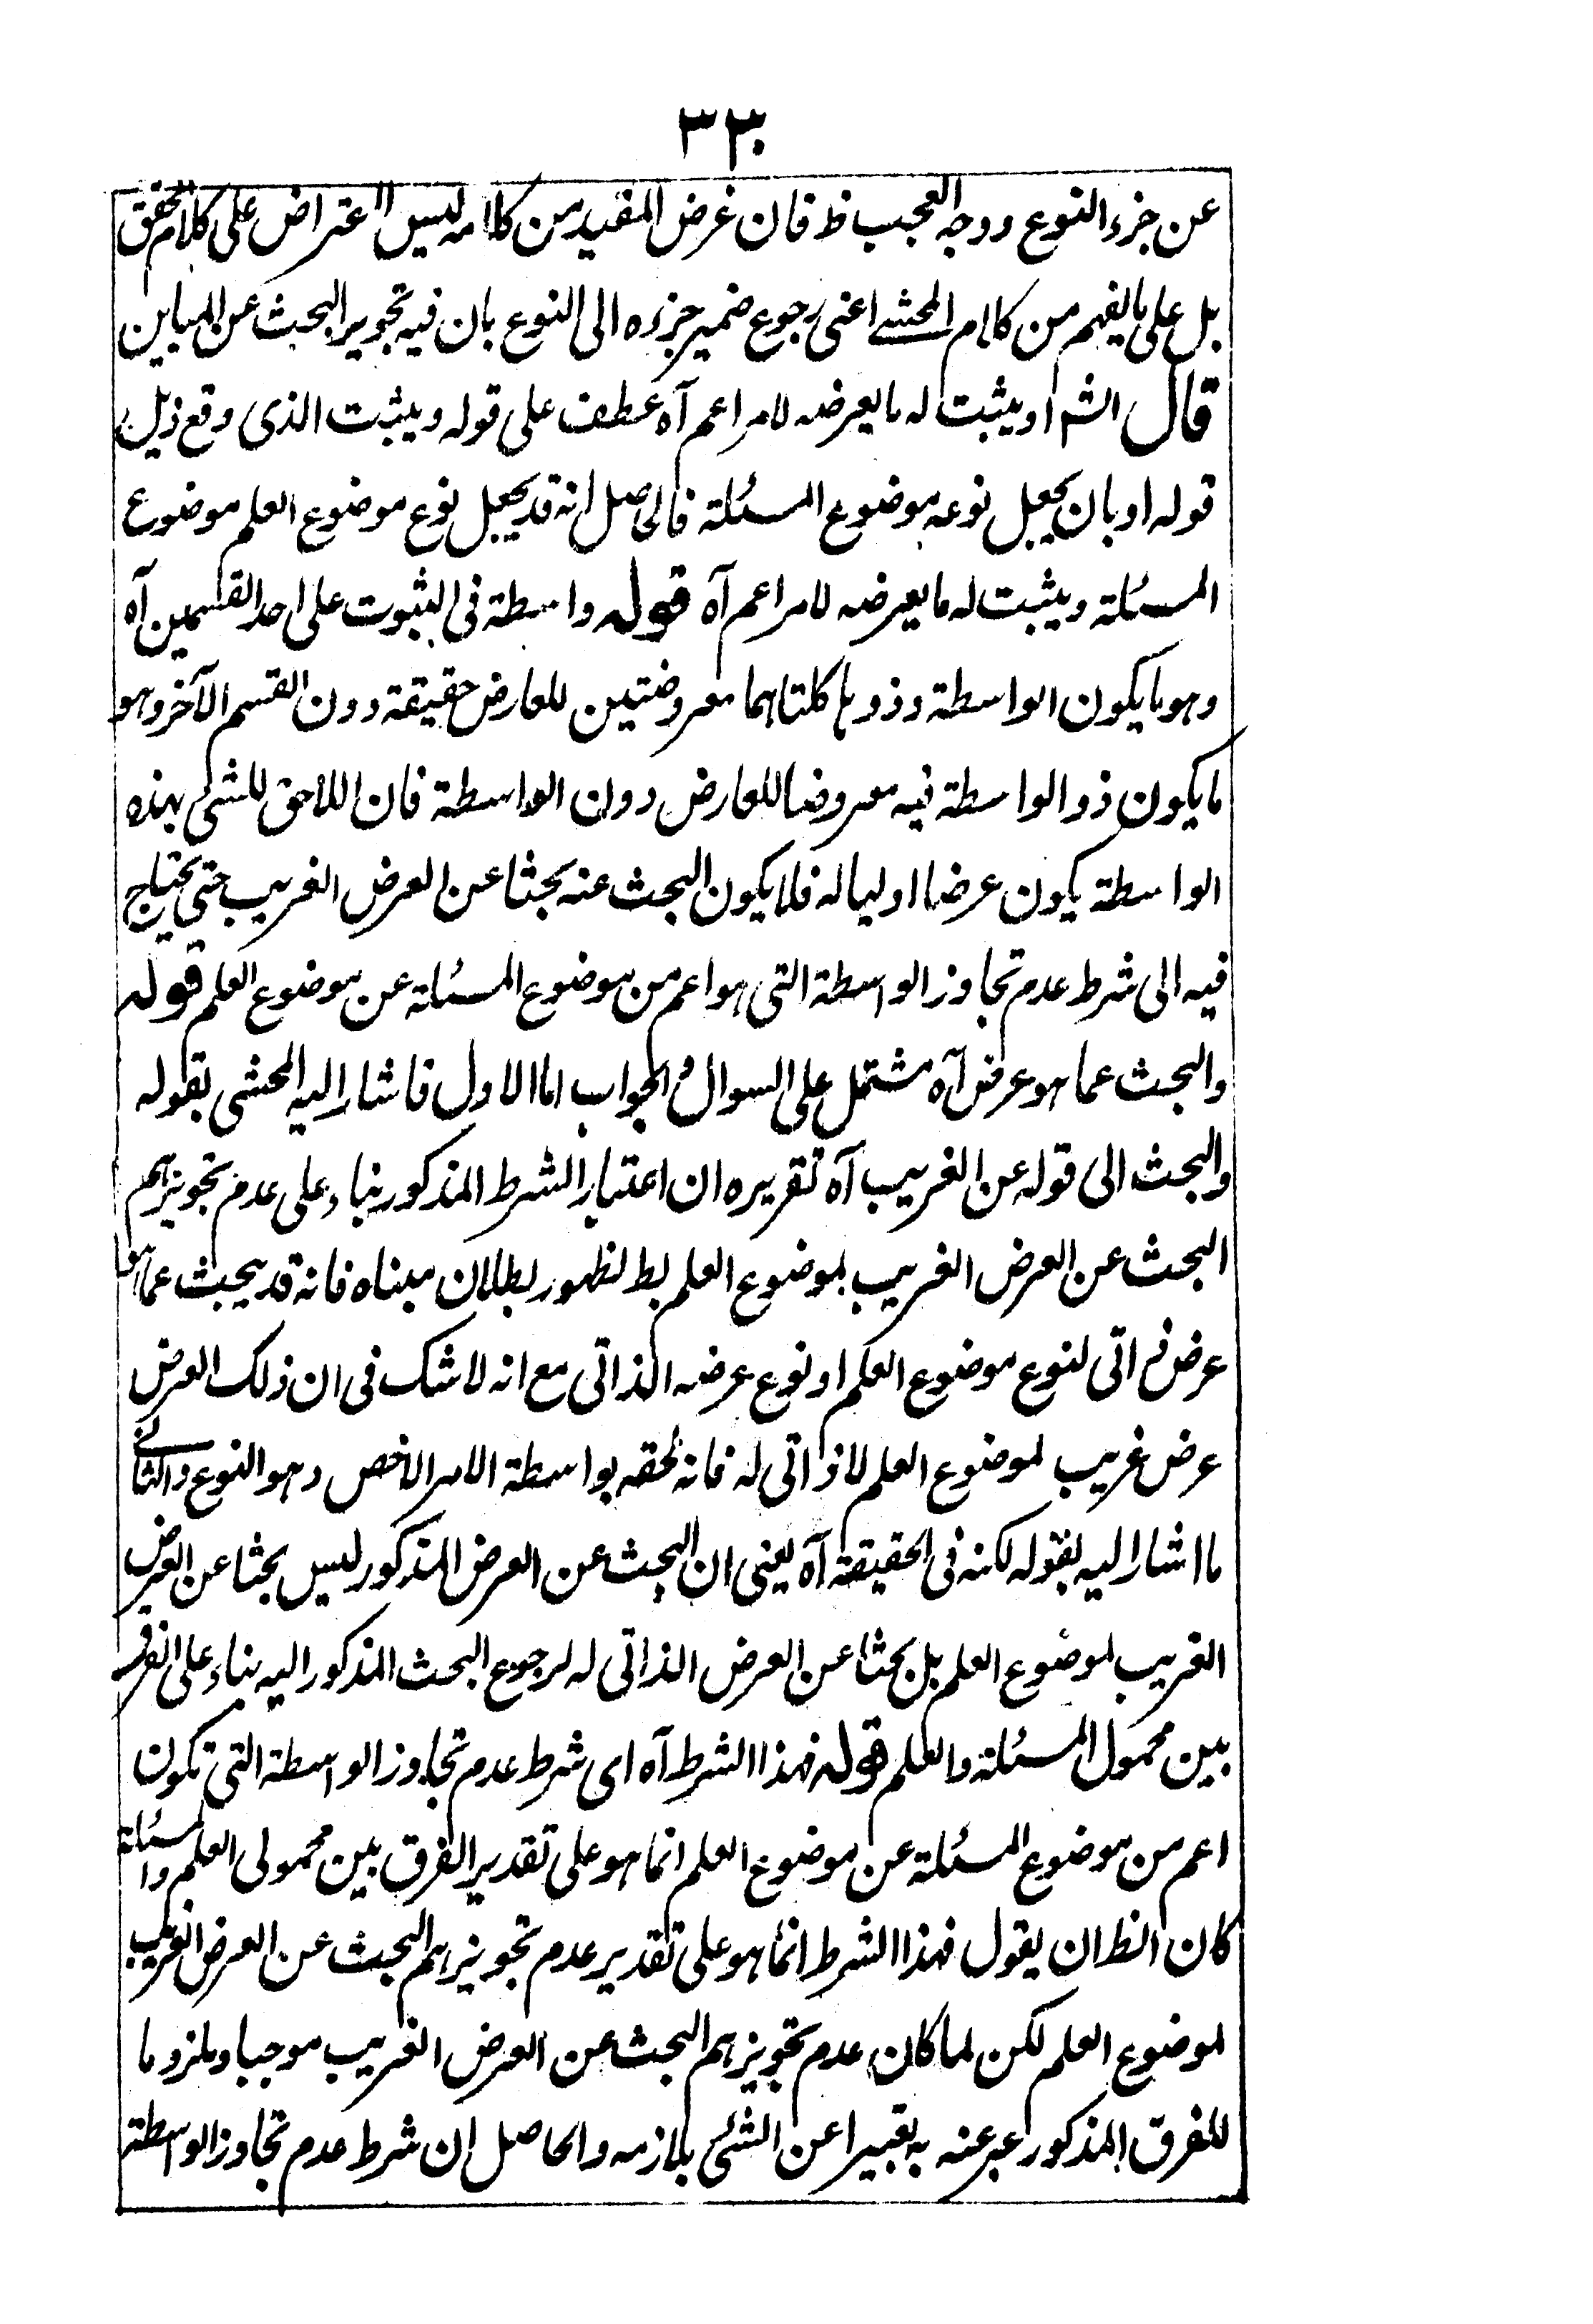 ٣٣
عن جزء النوع ووجه العجب ظ فان غرض المفيد من كلامه ليس الاعتراض على كلام المحقق
بل على ما يفهم من كلام المحشے اعنى رجوع ضمير جزءه الى النوع بان فيه تجويز البحث عن المباين
قال الشم او يثبت له ما يعرضه لامر اعم آه عطف على قوله ويثبت الذى وقع ذيل
قوله او بان يجعل نوعه موضوع المسئلة فالحاصل انه قد يجعل نوع موضوع العلم موضوع
المسئلة ويثبت له ما يعرضه لامر اعم آه قوله واسطة فى الثبوت على احد القسمين آه
وهو ما يكون الواسطة وذوها كلتاهما معروضتين للعارض حقيقة دون القسم الآخر وهو
ما يكون ذو الواسطة فيه معروضا للعارض دون الواسطة فان اللاحق للشئ بهذه
الواسطة يكون عرضا اوليا له فلا يكون البحث عنه بحثا عن العرض الغريب حتى يحتاج
فيه الى شرط عدم تجاوز الواسطة التى هو اعم من موضوع المسئلة عن موضوع العلم قوله
والبحث عما هو عرض آه مشتمل على السوال والجواب اما الاول فاشار اليه المحشى بقوله
والبحث الى قوله عن الغريب آه تقريره ان اعتبار الشرط المذكور بناء على عدم تجويزهم
البحث عن العرض الغريب لموضوع العلم بط لظهور بطلان مبناه فانه قد يبحث عما هو
عرض ذاتى لنوع موضوع العلم او نوع عرضه الذاتى مع انه لا شك فى ان ذلك العرض
عرض غريب لموضوع العلم لا ذاتى له فانه لحقه بواسطة الامر الاخص وهو النوع والثانے
ما اشار اليه بقوله لكنه فى الحقيقة آه يعنى ان البحث عن العرض المذكور ليس بحثا عن العرض
الغريب لموضوع العلم بل بحثا عن العرض الذاتى له لرجوع البحث المذكور اليه بناء على الفرق
بين محمول المسئلة والعلم قوله فهذا الشرط آه اى شرط عدم تجاوز الواسطة التى تكون
اعم من موضوع المسئلة عن موضوع العلم انما هو على تقدير الفرق بين محمولى العلم والمسئلة
كان الظ ان يقول فهذا الشرط انما هو على تقدير عدم تجويزهم البحث عن العرض الغريب
لموضوع العلم لكن لما كان عدم تجويزهم البحث عن العرض الغريب موجبا وملزوما
للفرق المذكور عبر عنه به تعبيرا عن الشئ بلازمه والحاصل ان شرط عدم تجاوز الواسطة